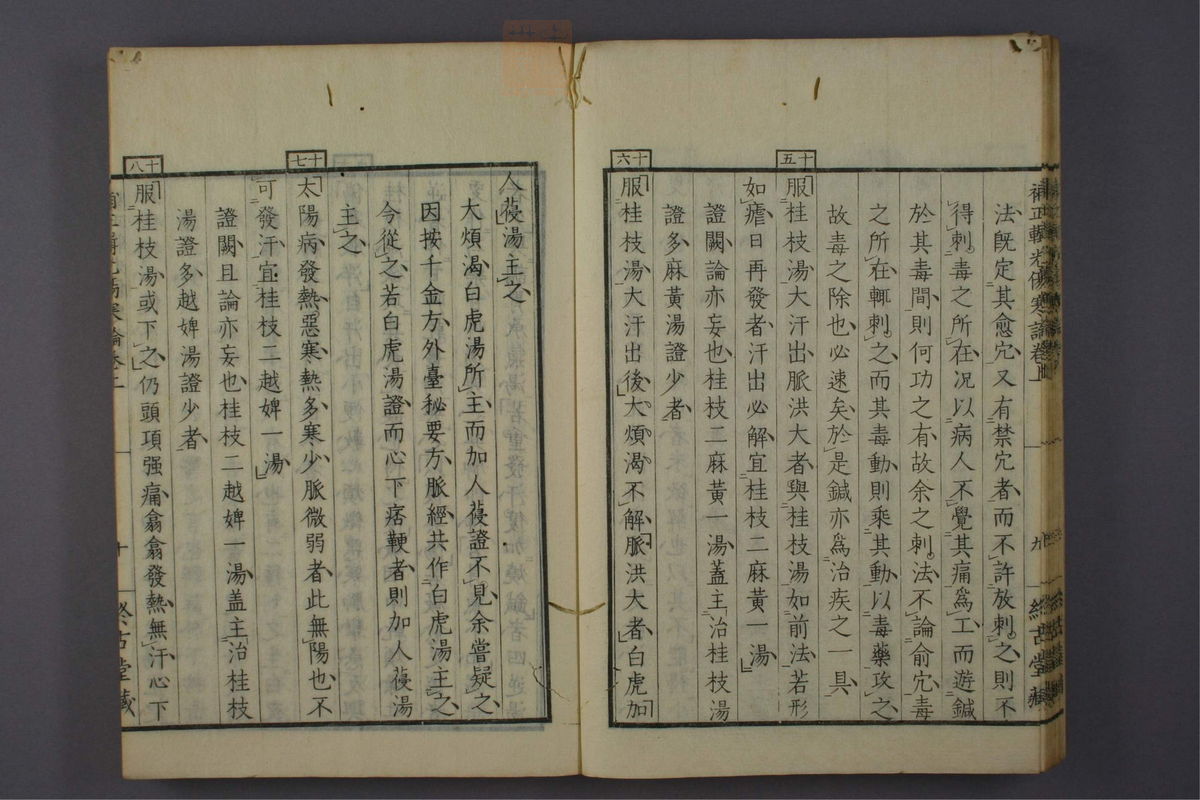 補正輯光傷寒論卷上
九
終古堂藏
法既定其愈宂又有禁宂者而不許放刺之則不
得刺毒之所在况以病人不覺其痛爲工而遊鍼
於其毒間則何功之有故余之刺法不論俞宂毒
之所在輒刺之而其毒動則乘其動以毒藥攻之
故毒之除也必速矣於是鍼亦爲治疾之一具
十五
服桂枝湯大汗出脈洪大者與桂枝湯如前法若形
如瘧日再發者汗出必解宜桂枝二麻黃一湯
證闕論亦妄也桂枝二麻黃一湯蓋主治桂枝湯
證多麻黃湯證少者
十六
服桂枝湯大汗出後大煩渴不解脈洪大者白虎加
人葠湯主之
大煩渴白虎湯所主而加人葠證不見余嘗疑之
因按千金方外臺秘要方脈經共作白虎湯主之
今從之若白虎湯證而心下痞鞕者則加人葠湯
主之
十七
太陽病發熱惡寒熱多寒少脈微弱者此無陽也不
可發汗宜桂枝二越婢一湯
證闕且論亦妄也桂枝二越婢一湯盖主治桂枝
湯證多越婢湯證少者
十八
服桂枝湯或下之仍頭項强痛翕翕發熱無汗心下
十
終古堂藏